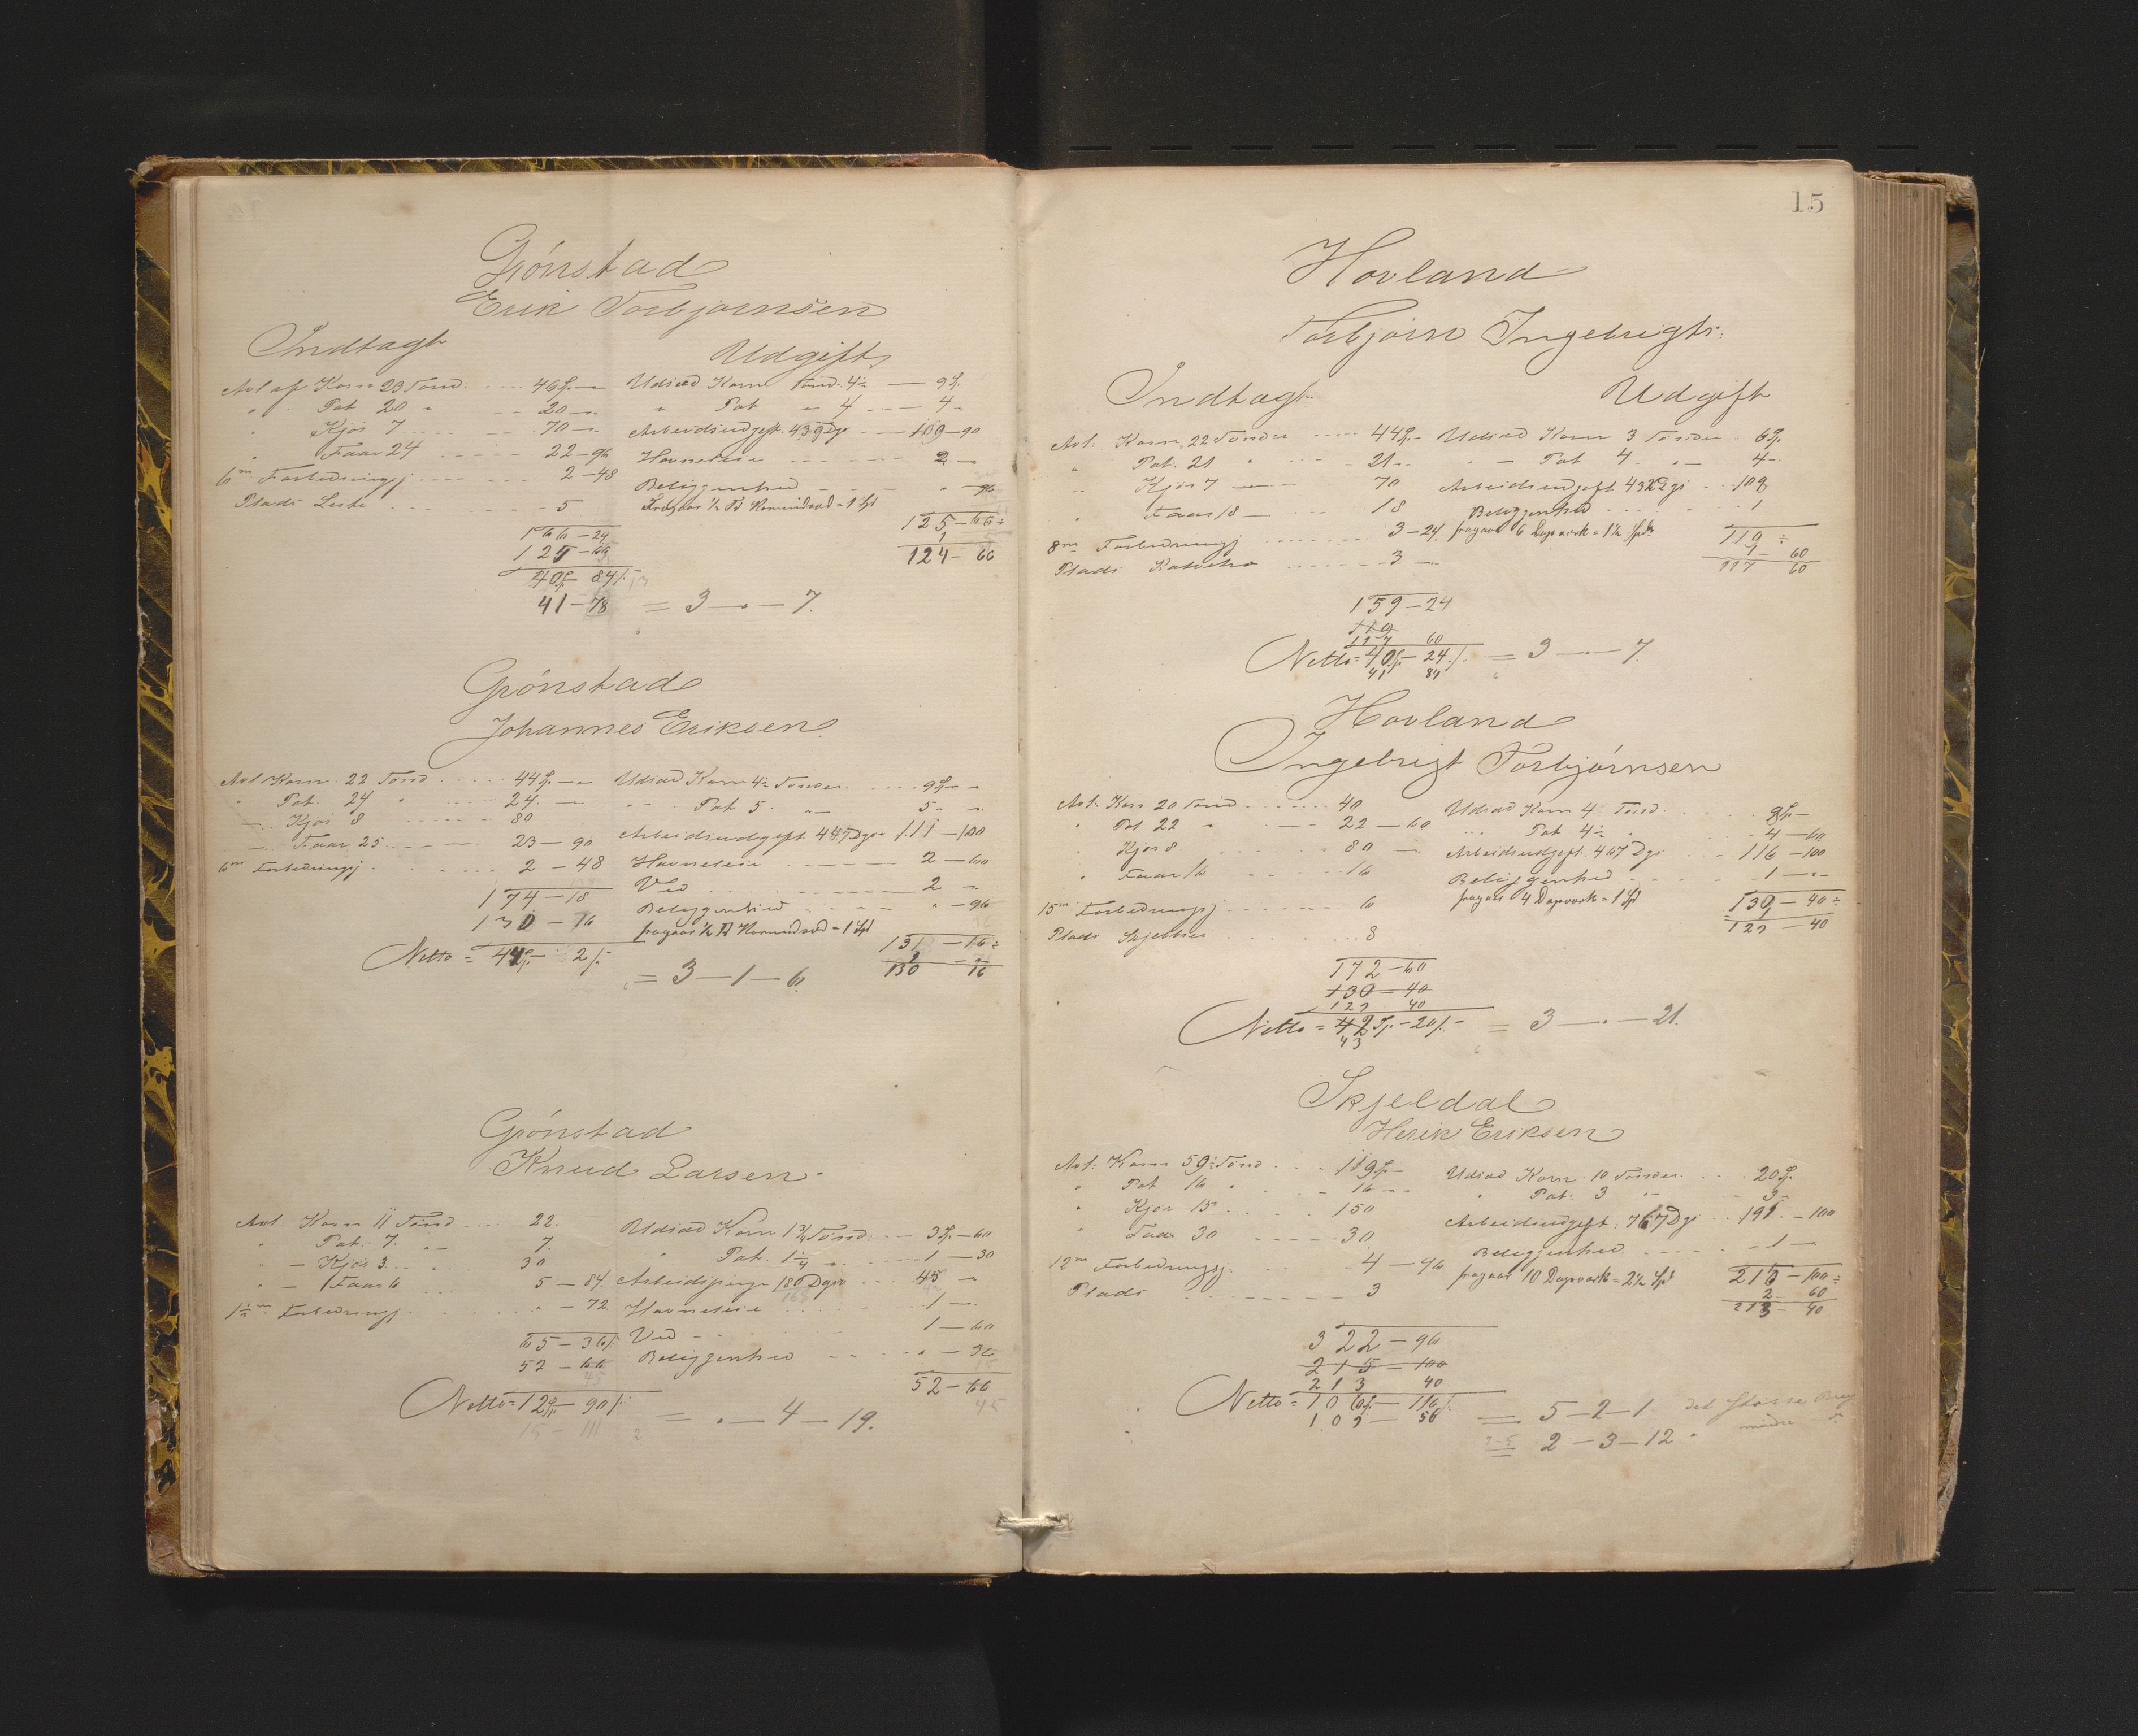 Grönstad
Erik Torbjørnsen
Indtægt
Udgift
Avl af Korn 23 Tønd. 46 Sp. —
" Pot 20 " 20 —
" Kjør 7 70 —
" Faar 24 22 — 96
6 m Forbedringsj 2 — 48
Plads Leite 5
166 — 24
125 — 66
40 Sp — 84 s
41 — 78 = 3 — " — 7.
Udsæd Korn Tønd. 4½ — 9 Sp.
" Pot " 4 — 4 "
Arbeidsudgift 439 Dge — 109 — 90
Havneleie 2 —
Beliggenhed " — 96
fragaar ½ Td Havreudsæd = 1 Spd
125 — 66 ÷
1
124 — 66
Grönstad
Johannes Eriksen
Avl Korn 22 Tønd 44 Sp. —
" Pot. 24 " 24. —
— Kjør 8 80
— Faar 25 23 — 90
6 m Forbedringsj 2 — 48
174 — 18
130 — 16
Netto = 44 Sp — 2 s
= 3 — 1 — 6.
Udsæd Korn 4½ Tønder 9 Sp —
" Pot 5 " 5 —
Arbeidsudgift 447 Dge 111 — 100
Havneleie 2 — 60
Ved 2 "
Beliggenhed " — 96
fragaar ½ Td Havreudsæd = 1 Spd
131 — 16 ÷
1 — "
130 16
Grönstad
Knud Larsen
Avl. Korn 11 Tønd 22.
" Pot. 7. " 7.
" — Kjør 3 30
" — Faar 6 5 — 84
1½ m Forbedringsj " — 72
65 — 36 s
52 — 66
Netto = 12 Sp — 90 s
15 — 111 = " — 4 — 19.
Udsæd Korn 1¾ Tønd. 3 Sp — 60
" Pot. 1¼ " 1 — 30
Arbeidspenge 180 Dge 45 "
Havneleie 1 —
Ved 1 — 60
Beliggenhed " — 36
52 — 66
45
15
Hovland
Torbjørn Ingebrigts:
Indtægt
Udgift
Avl: Korn 22 Tønder 44 Sp —
" Pot. 21 " 21 "
" Kjør 7 — 70
" Faar 18 — 18
8 m Forbedringsj 3 — 24
Plads 3 —
159 — 24
119
117 60
Netto = 40 Sp — 24 s = 3 — " — 7.
41 84
Udsæd Korn 3 Tønder 6 Sp.
" — Pot 4 " — 4 "
Arbeidsudgift 432 Dge 108
Beliggenhed 1
fragaar 6 Dagsværk = 1½ Spd
119 ÷
1 — 60
117 60
Hovland
Ingebrigt Torbjørnsen
Avl: Korn 20 Tønd 40
" Pot 22 " 22 — 60
" Kjør 8 80 —
" Faar 16 16
15 m Forbedringsj 6
Plads 8
172 — 60
130 — 40
129 40
Netto = 42 Sp — 20 s = 3 — " — 21.
43
Udsæd Korn 4 Tønd 8 Sp —
" Pot 4½ " 4 — 60
Arbeidsudgift 467 Dge 116 — 100
Beliggenhed 1 — "
fragaar 4 Dagsværk = 1 Spd
130 — 40 ÷
1
129 — 40
Skjeldal
Henrik Eriksen
Avl: Korn 59½ Tønd 119 Sp —
" Pot 16 " 16 "
" Kjør 15 150
" Faar 30 30
12 m Forbedringsj 4 — 96
Plads 3
322 — 96
215 — 100
213 40
Netto = 106 Sp — 116 s
109 — 56 = 5 — 2 — 1 det større Brug
2 — 3 — 12 " mindre
Udsæd Korn 10 Tønder 20 Sp.
" Pot. 3 " 3 "
Arbeidsudgift: 767 Dge 191 — 100
Beliggenhed 1 —
fragaar 10 Dagsværk = 2½ Spd
215 — 100 ÷
2 — 60
213 — 40